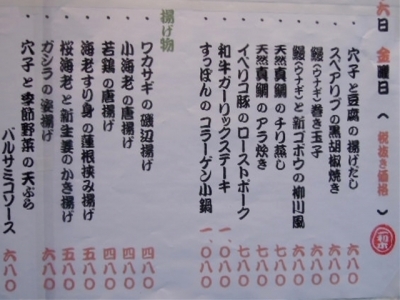 六日 金曜日 （税抜き価格）
・穴子と豆腐の揚げだし 六八〇
・スペアリブの黒胡椒焼き 六八〇
・鰻（ウナギ）巻き玉子 六八〇
・鰻（ウナギ）と新ゴボウの柳川風 六八〇
・天然真鯛のチリ蒸し 六八〇
・天然真鯛のアラ炊き 七八〇
・イベリコ豚のローストポーク 七八〇
・和牛ガーリックステーキ 一、〇八〇
・すっぽんのコラーゲン小鍋 一、〇八〇
揚げ物
・ワカサギの磯辺揚げ 四八〇
・小海老の唐揚げ 四八〇
・若鶏の唐揚げ 四八〇
・海老すり身の蓮根挟み揚げ 五八〇
・桜海老と新生姜のかき揚げ 五八〇
・ガシラの姿揚げ 六八〇
・穴子と季節野菜の天ぷら
バルサミコソース 六八〇